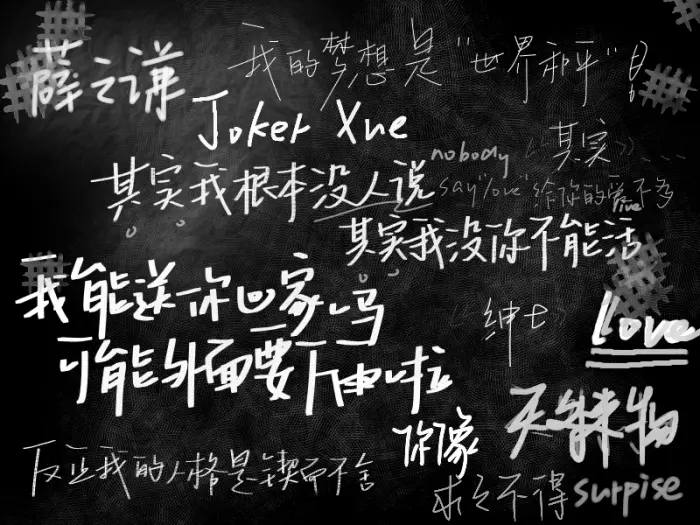 薛之谦
我的梦想是"世界和平"!
Joker Xue
其实我根本没人说
nobody
《其实》...
say "love" 给你的爱不多
live
其实我没你不能活
我能送你回家吗
《绅士》
love
可能外面要下雨啦
你像
天外来物
反正我的人格是锲而不舍
求之不得
surpise